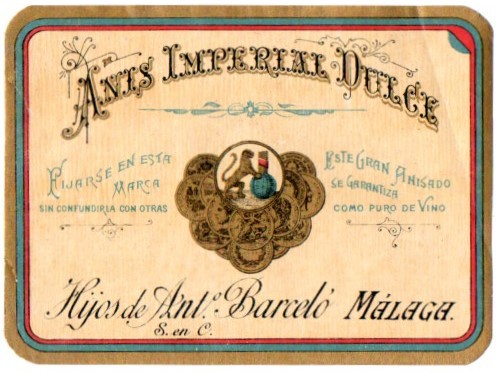 ANIS IMPERIAL DULCE
FIJARSE EN ESTA
MARCA
SIN CONFUNDIRLA CON OTRAS
ESTE GRAN ANISADO
SE GARANTIZA
COMO PURO DE VINO
Hijos de Antº. Barceló MÁLAGA.
S. en C.